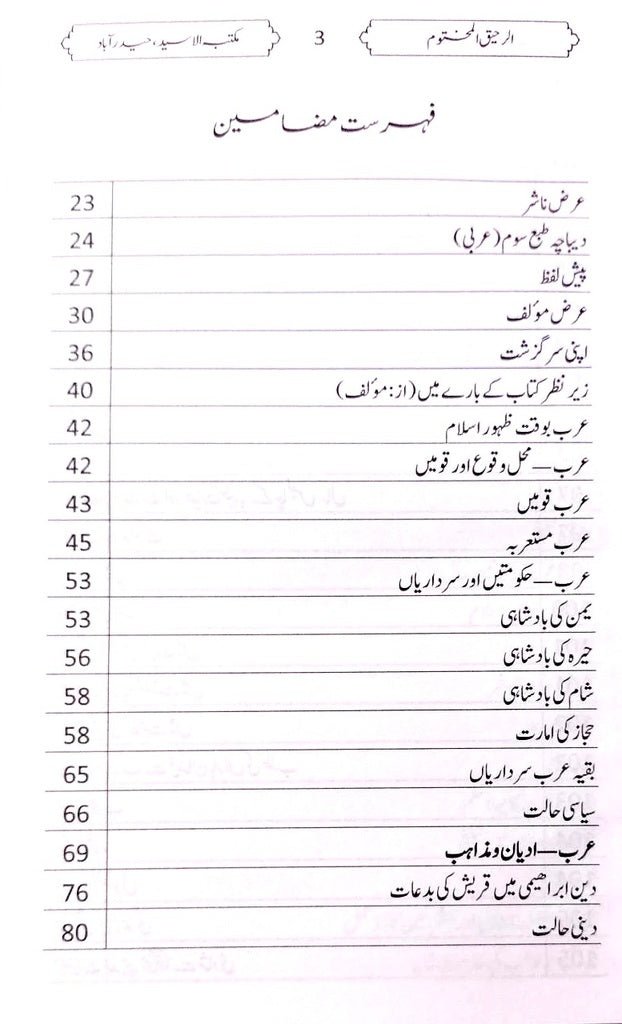 الرحیق المختوم 3 مکتبہ الاسید، حیدرآباد
فہرست مضامین
عرض ناشر 23
دیباچہ طبع سوم (عربی) 24
پیش لفظ 27
عرض مؤلف 30
اپنی سرگزشت 36
زیر نظر کتاب کے بارے میں (از: مؤلف) 40
عرب بوقت ظہور اسلام 42
عرب — محل وقوع اور قومیں 42
عرب قومیں 43
عرب مستعربہ 45
عرب — حکومتیں اور سرداریاں 53
یمن کی بادشاہی 53
حیرہ کی بادشاہی 56
شام کی بادشاہی 58
حجاز کی امارت 58
بقیہ عرب سرداریاں 65
سیاسی حالت 66
عرب — ادیان ومذاہب 69
دین ابراھیمی میں قریش کی بدعات 76
دینی حالت 80